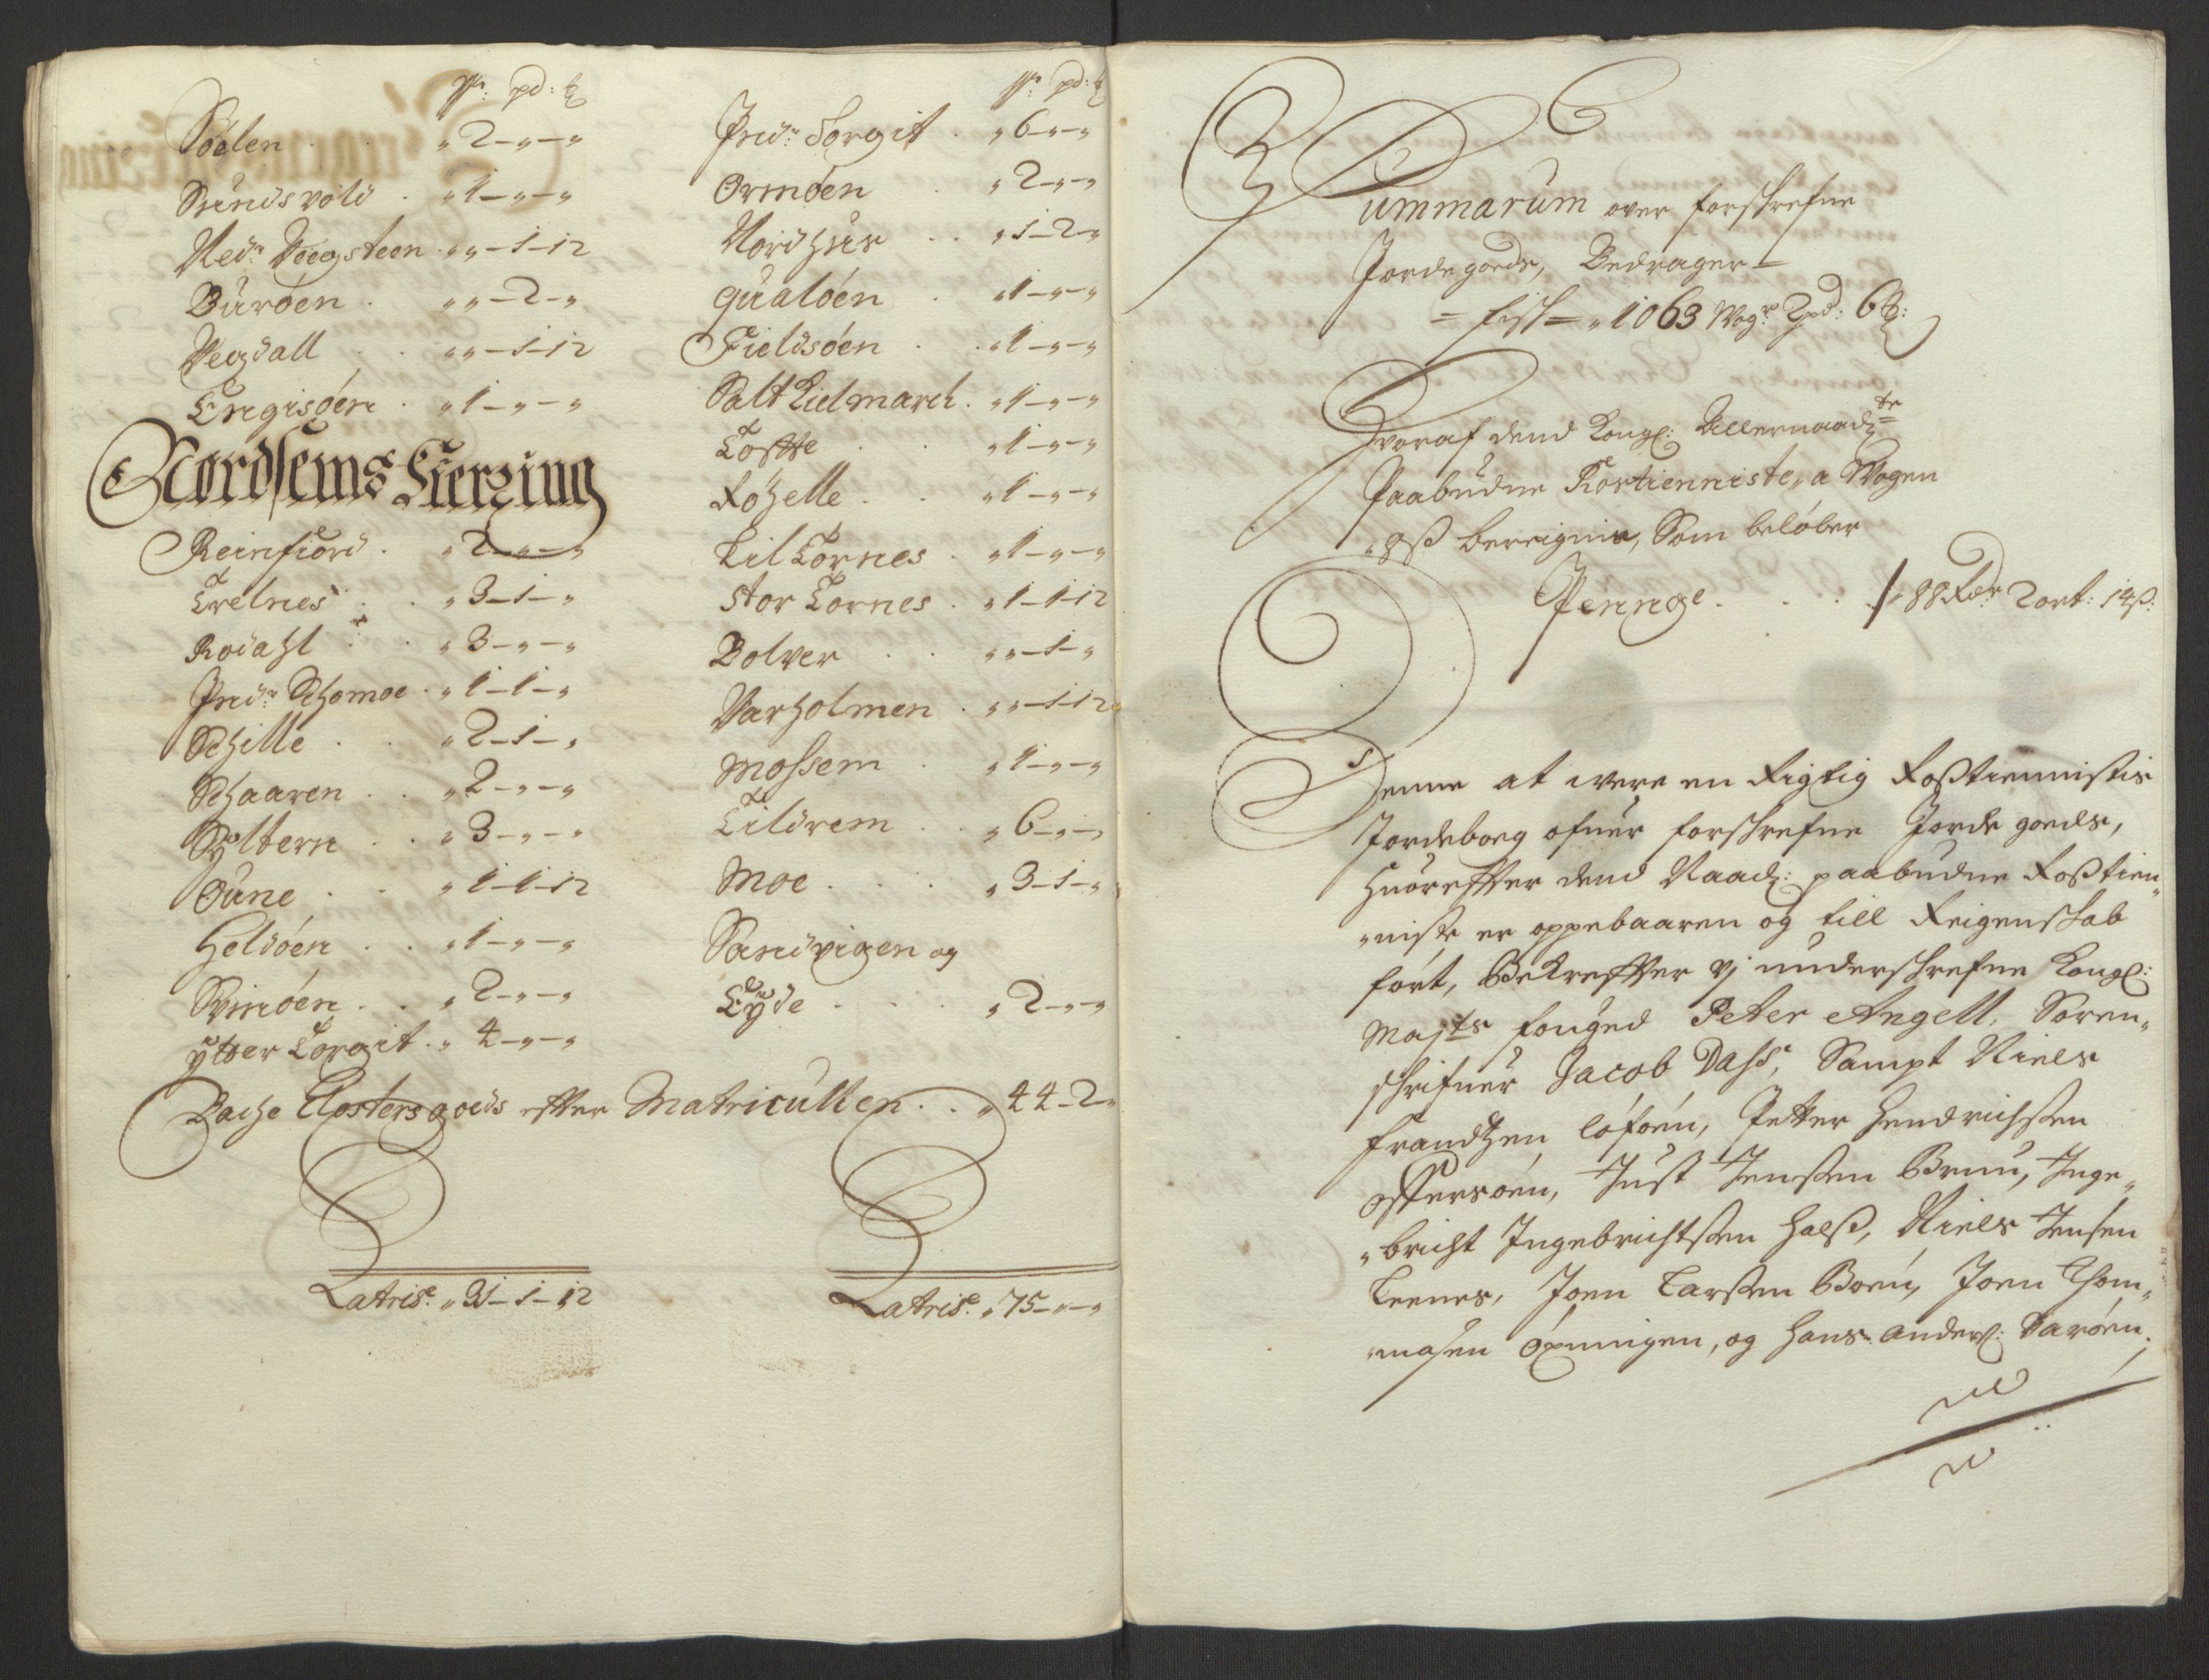 W: pd: ℔
Sóelen . . „ 2-„-„
Sundsvold . „ 1-„-„
Ned: Vegsteen „ „-1-12
Buróen . „ „-2-„
Vegdall . . „ „-1-12
Engisóen . „ 1-„-„
Nordlems Fierzing
Reinfiord . „ 2-„-„
Trelnes . . „ 3-1-„
Rodahl . . „ 3-„-„
Indr Schomoe . „ 1-1-„
Schille . . „ 2-1-„
Schaaren . . „ 2-„-„
Syltern . . „ 3-„-„
Oune . . „ 1-1-12
Heldóen . . „ 1-„-„
Svinóen . . „ 2-„-„
ytter Torgit . „ 4-„-„
W: pd: ℔
Indr Torgit . „ 6-„-„
Ormóen . „ 2-„-„
Nordhus . . „ 1-2-„
Qualóen . „ 1-„-„
Fieldsóen . . „ 1-„-„
Salt Kielmarch . „ 1-„-„
Tofte . . „ 1-„-„
Róhelle . . „ 1-„-„
Lil Tornes . „ 1-„-„
Stor Tornes . „ 1-1-12
Bolver . . „ „-1-„
Varholmen . „ „-1-12
Mossem . „ 1-„-„
Tildrem . . „ 6-„-„
Moe . . . „ 3-1-„
Sandvigen og
Eyde . . . „ 2-„-„
Bache Closters goeds efter Matricullen . . „ 44-2-„
Latris: „ 31-1-12
Latris: „ 75-„-„
Summarum over forschrefne
Jordegoeds, Bedrager =
= fisk = „ 1063 Wogr 2 pd: 6 ℔:
Hvoraf dend Kongl: Allernaadte
Paabudne Rostienniste, a Wogen
„ 8 ß bereignis, Som belóber
Penge . . . . / „ 88 Rdr 2 ort: 14 ß:
Denne at were en Rigtig Rosztiennistis
Jordeboeg ofuer forschrefne Jorde goeds,
Huorefter dend Naad: paabudne Rosztien„
„niste er oppebaaren og till Reigenschab
fórt, Bekrefter vj underschrefne Kongl:
Majts fouged Peter Angell, Soren„
schrifuer Jacob Dass, Sampt Niels
Frandtzen lófóen, Petter Hendrichssen
Offersóen, Just Jenssen Brun, Inge„
„bricht Ingebrichtssen Halsz, Niels Jensen
Leenes, Joen Larssen Boen, Joen Thom„
„masen Óxningen, og Hans Anders: Varóen